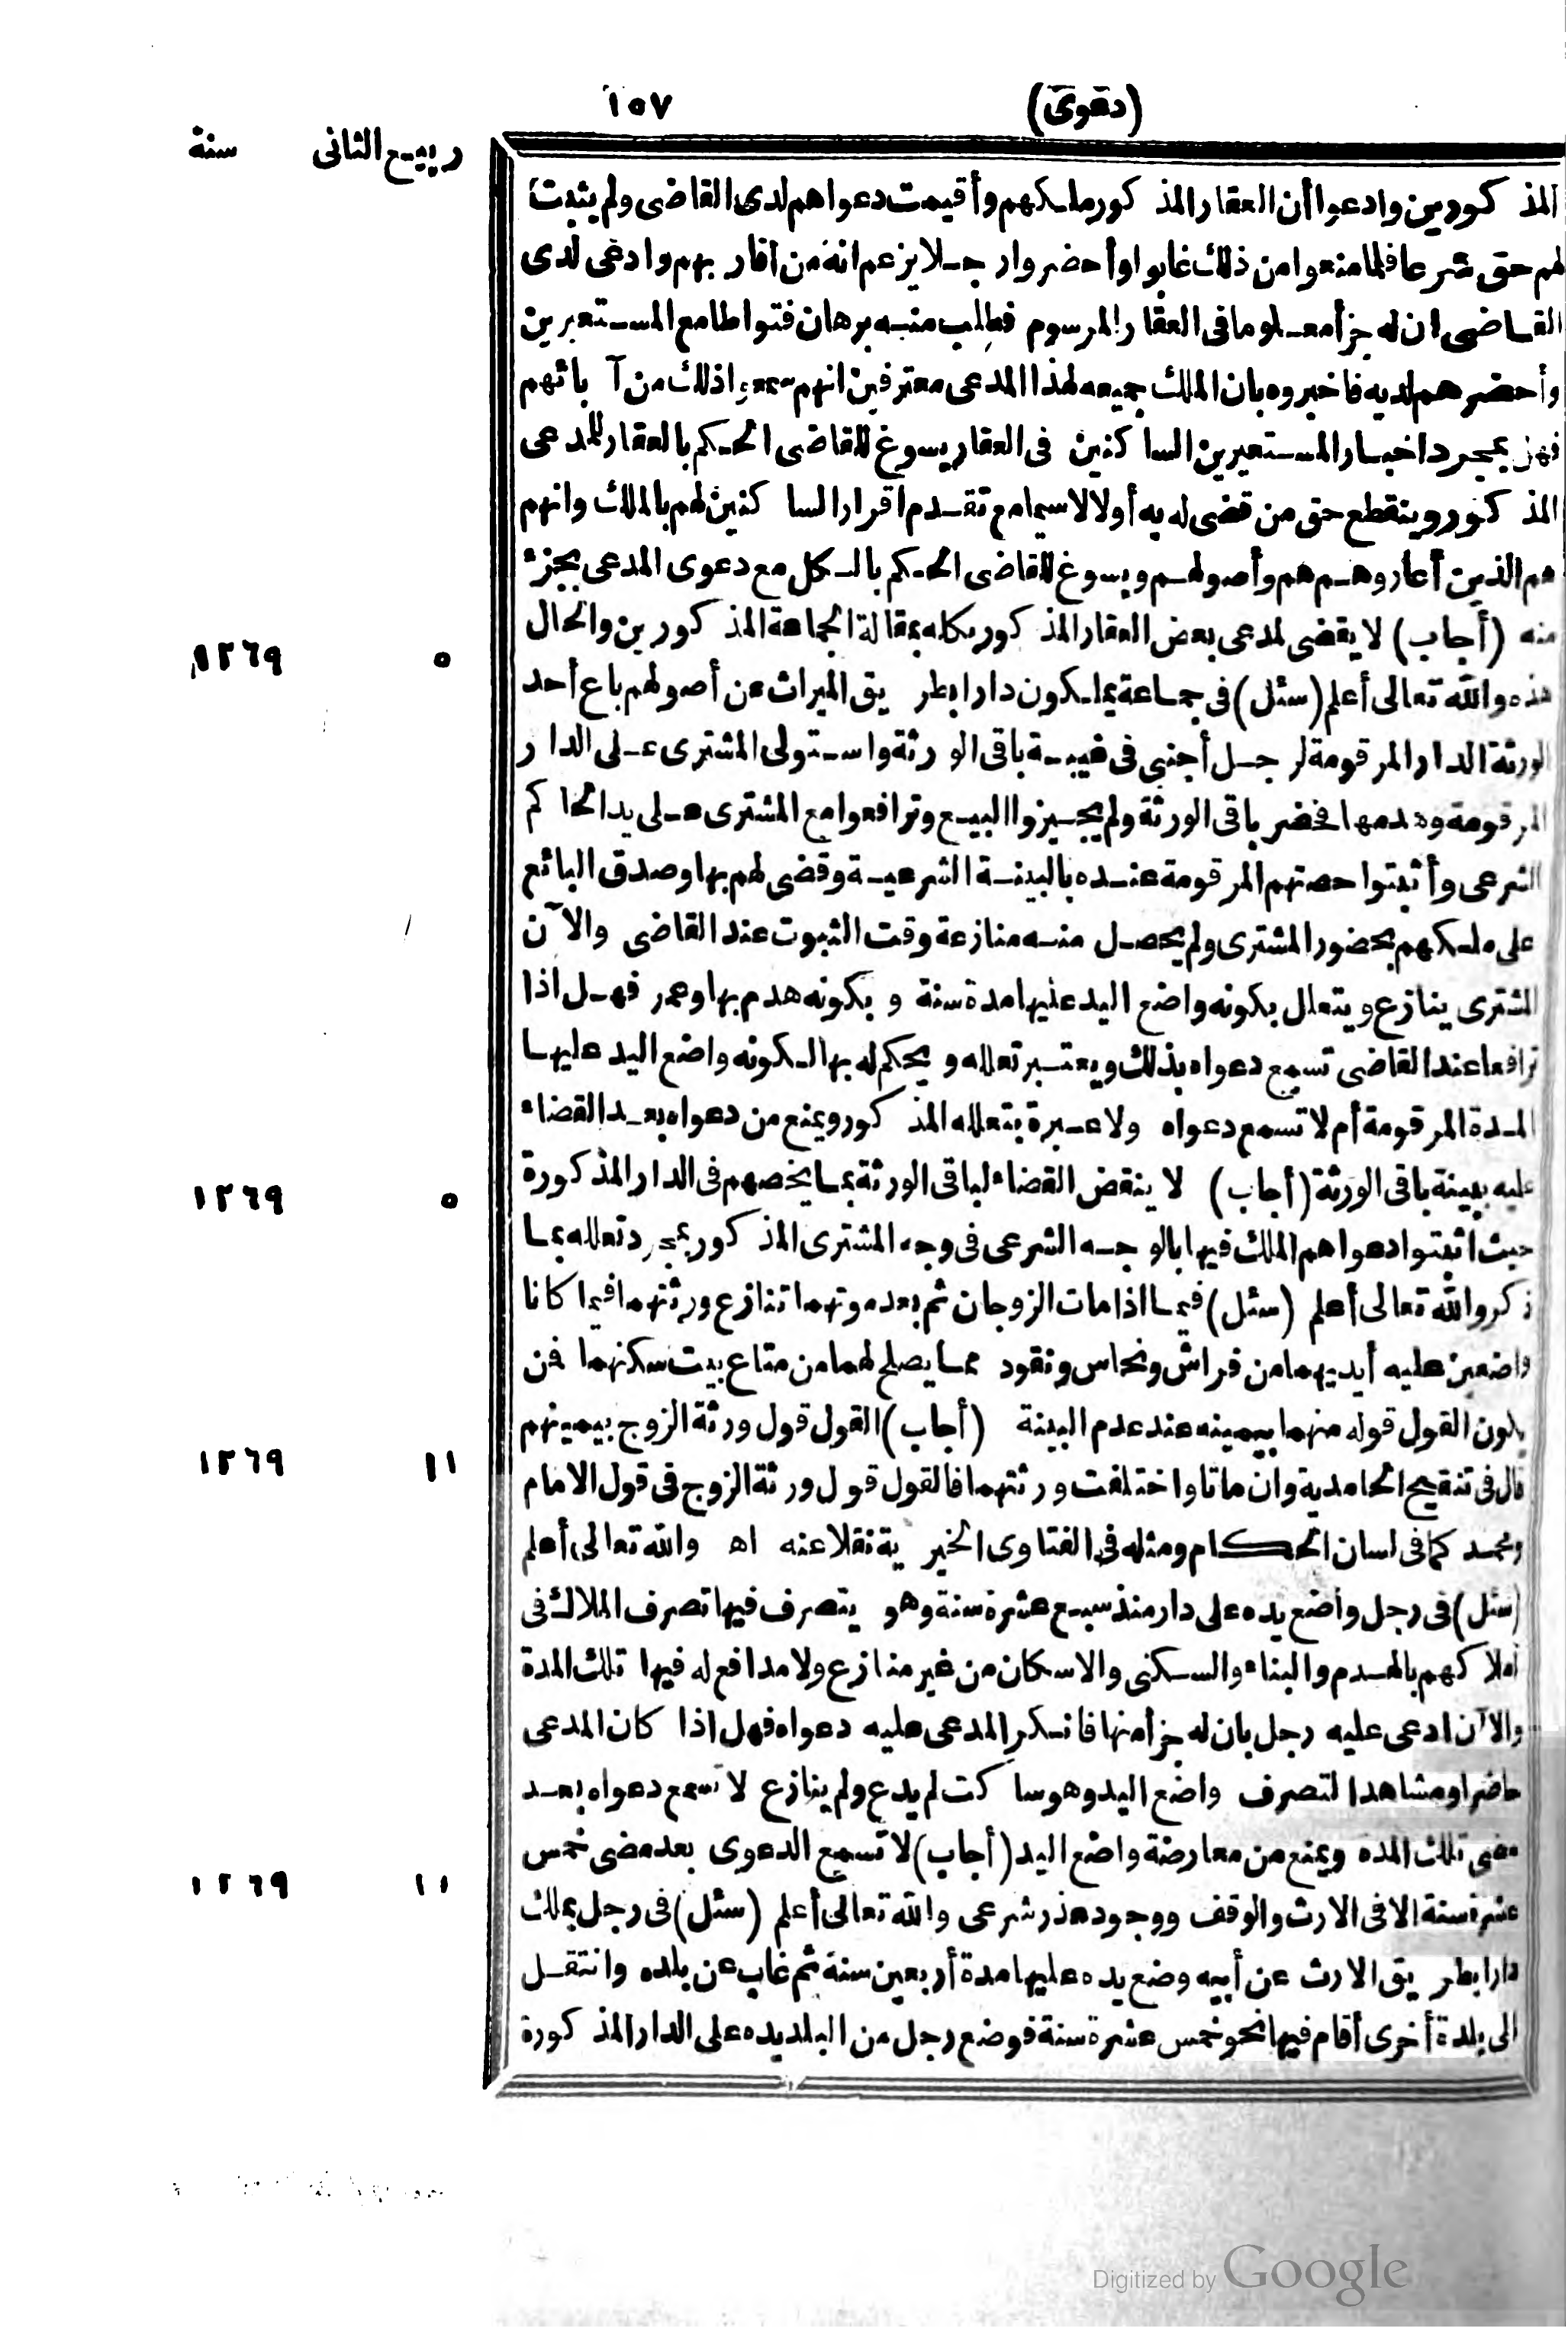 (دعوى) ١٥٧
ربيع الثانى سنة
المذكورين وادعوا أن العقار المذكور ملكهم وأقيمت دعواهم لدى القاضى ولم يثبت
لهم حق شرعا فلما منعوا من ذلك غابوا وأحضروا رجلا يزعم انه من أقاربهم وادعى لدى
القاضى ان له جزأ معلوما فى العقار المرسوم فطلب منه برهان فتواطا مع المستعيرين
وأحضرهم لديه فاخبروه بان الملك جميعه لهذا المدعى معترفين انهم سمعوا ذلك من آبائهم
فهل بمجرد اخبار المستعيرين الساكنين فى العقار يسوغ للقاضى الحكم بالعقار للمدعى
المذكور وينقطع حق من قضى له به أولا لاسيما مع تقدم اقرار الساكنين لهم بالملك وانهم
هم الذين أعاروهم هم وأصولهم ويسوغ للقاضى الحكم بالكل مع دعوى المدعى بجزء
منه (أجاب) لا يقضى لمدعى بعض العقار المذكور بكله بمقالة الجماعة المذكورين والحال
هذه والله تعالى أعلم (سئل) فى جماعة يملكون دارا بطريق الميراث عن أصولهم باع أحد
٥ ١٢٦٩
الورثة الدار المرقومة لرجل أجنبى فى غيبة باقى الورثة واستولى المشترى على الدار
المرقومة وهدمها فحضر باقى الورثة ولم يجيزوا البيع وترافعوا مع المشترى على يد الحاكم
الشرعى وأثبتوا حصتهم المرقومة عنده بالبينة الشرعية وقضى لهم بها وصدق البائع
على ملكهم بحضور المشترى ولم يحصل منه منازعة وقت الثبوت عند القاضى والآن
المشترى ينازع ويتعلل بكونه واضع اليد عليها مدة سنة وبكونه هدم بها وعمر فهل اذا
ترافعا عند القاضى تسمع دعواه بذلك ويعتبر تعلله ويحكم له بها لكونه واضع اليد عليها
المدة المرقومة أم لا تسمع دعواه ولا عبرة بتعلله المذكور ويمنع من دعواه بعد القضاء
عليه ببينة باقى الورثة (أجاب) لا ينقض القضاء لباقى الورثة بما يخصهم فى الدار المذكورة
٥ ١٢٦٩
حيث اثبتوا دعواهم الملك فيها بالوجه الشرعى فى وجه المشترى المذكور بمجرد تعلله بما
ذكر والله تعالى أعلم (سئل) فيما اذا مات الزوجان ثم بعد موتهما تنازع ورثتهما فيما كانا
واضعين عليه أيديهما من فراش ونحاس ونقود مما يصلح لهما من متاع بيت سكنهما فمن
يكون القول قوله منهما بيمينه عند عدم البينة (أجاب) القول قول ورثة الزوج بيمينهم
١١ ١٢٦٩
قال فى تنقيح الحامدية وان ماتا واختلفت ورثتهما فالقول قول ورثة الزوج فى قول الامام
ومحمد كما فى لسان الحكام ومثله فى الفتاوى الخيرية نقلا عنه اه والله تعالى أعلم
(سئل) فى رجل واضع يده على دار منذ سبع عشرة سنة وهو يتصرف فيها تصرف الملاك فى
أملاكهم بالهدم والبناء والسكنى والاسكان من غير منازع ولا مدافع له فيها تلك المدة
والآن ادعى عليه رجل بان له جزأ منها فانكر المدعى عليه دعواه فهل اذا كان المدعى
حاضرا ومشاهدا لتصرف واضع اليد وهو ساكت لم يدع ولم ينازع لا تسمع دعواه بعد
مضى تلك المده ويمنع من معارضة واضع اليد (أجاب) لا تسمع الدعوى بعد مضى خمس
١١ ١٢٦٩
عشرة سنة الا فى الارث والوقف ووجود عذر شرعى والله تعالى أعلم (سئل) فى رجل يملك
دارا بطريق الارث عن أبيه وضع يده عليها مدة أربعين سنة ثم غاب عن بلده وانتقل
الى بلدة أخرى أقام فيها نحو خمس عشرة سنة فوضع رجل من البلد يده على الدار المذكورة
Digitized by Google